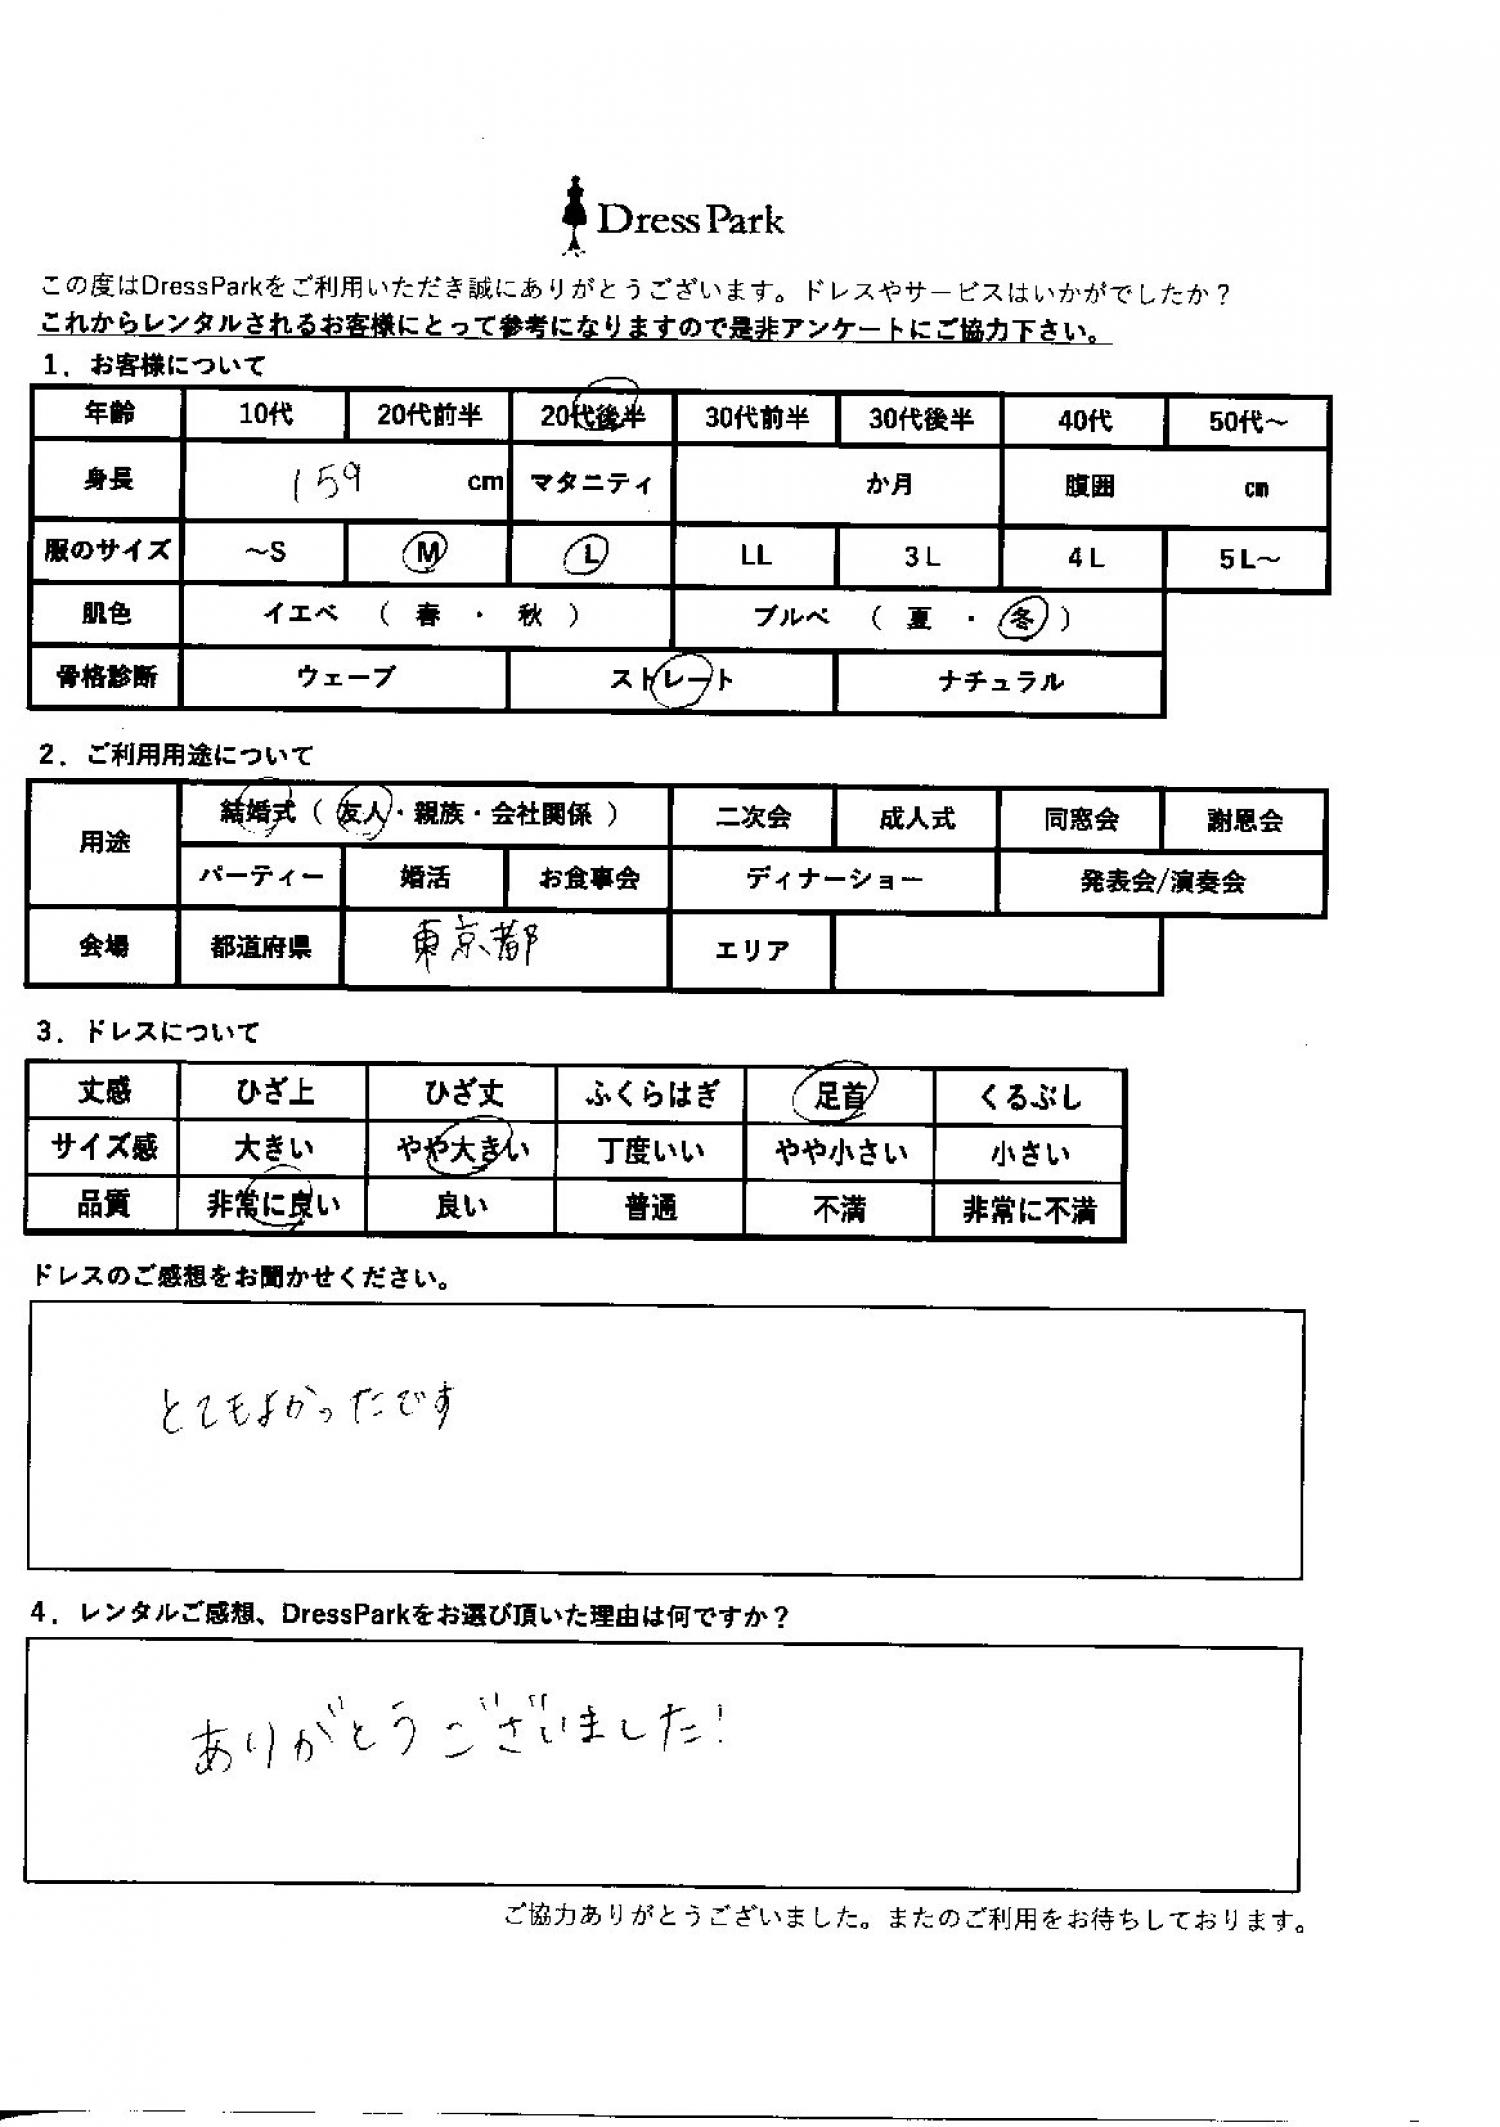 DressPark
この度はDressParkをご利用いただき誠にありがとうございます。ドレスやサービスはいかがでしたか？
これからレンタルされるお客様にとって参考になりますので是非アンケートにご協力下さい。
1．お客様について
年齢 10代 20代前半 20代後半 30代前半 30代後半 40代 50代～
身長 159 cm マタニティ か月 腹囲 cm
服のサイズ ～S M L LL 3L 4L 5L～
肌色 イエベ （ 春 ・ 秋 ） ブルベ （ 夏 ・ 冬 ）
骨格診断 ウェーブ ストレート ナチュラル
2．ご利用用途について
用途 結婚式（ 友人・親族・会社関係 ） 二次会 成人式 同窓会 謝恩会
パーティー 婚活 お食事会 ディナーショー 発表会/演奏会
会場 都道府県 東京都 エリア
3．ドレスについて
丈感 ひざ上 ひざ丈 ふくらはぎ 足首 くるぶし
サイズ感 大きい やや大きい 丁度いい やや小さい 小さい
品質 非常に良い 良い 普通 不満 非常に不満
ドレスのご感想をお聞かせください。
とてもよかったです
4．レンタルご感想、DressParkをお選び頂いた理由は何ですか？
ありがとうございました！
ご協力ありがとうございました。またのご利用をお待ちしております。